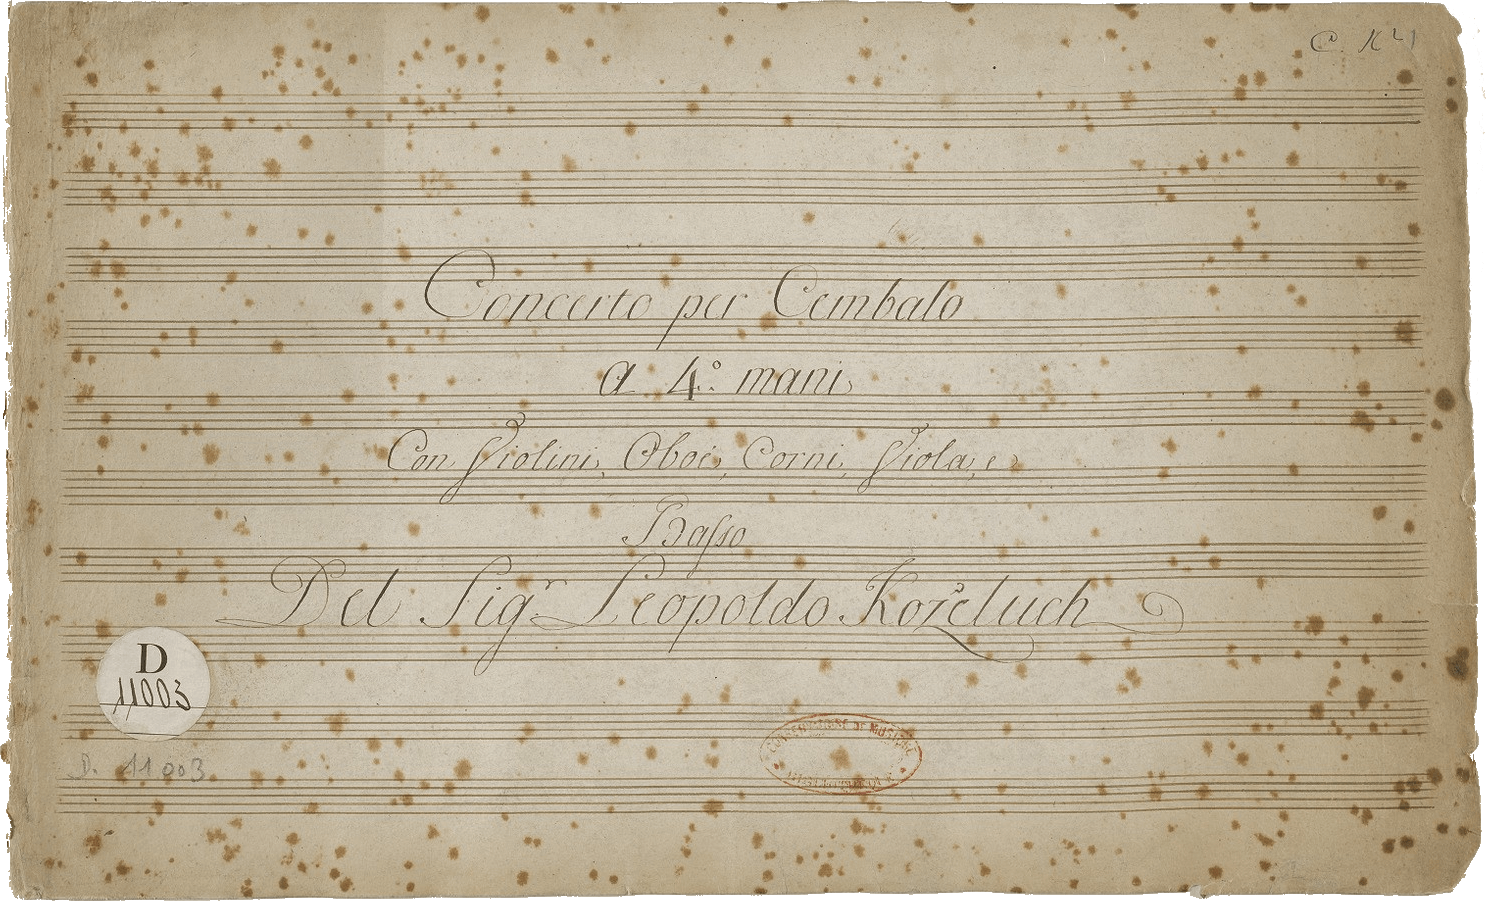 C. K 21
Concerto per Cembalo
a 4.º mani
Con Violini, Oboi, Corni, Viola, e
Baſso
Del Sig.r Leopoldo Kożeluch
D
11003
CONSERVATOIRE DE MUSIQUE
BIBLIOTHÈQUE
D. 11003